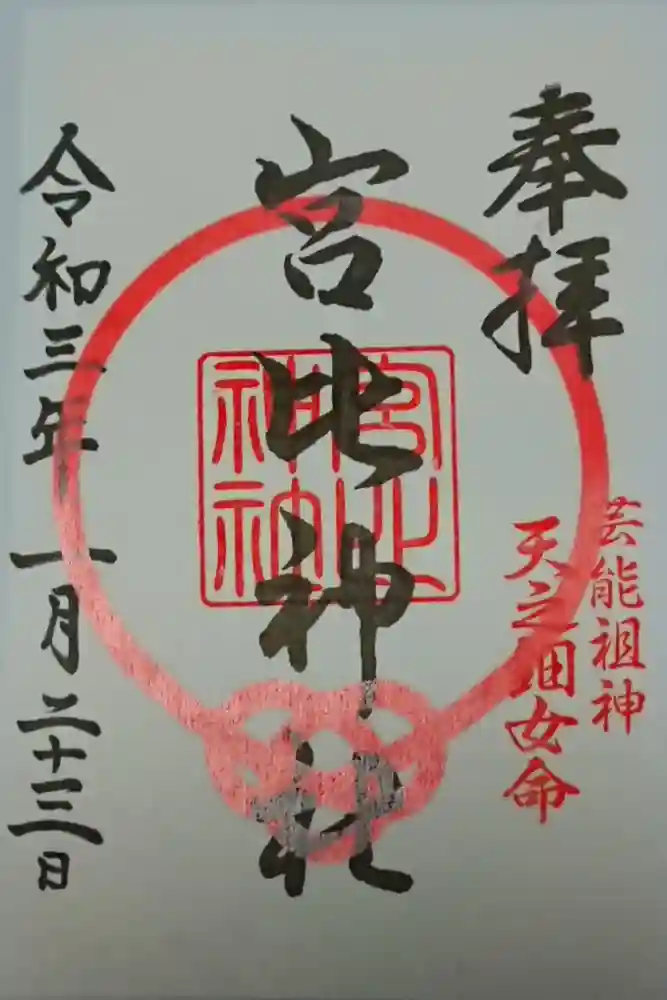 奉拝
芸能祖神
天之鈿女命
宮比神社
宮比
神社
令和三年一月二十三日